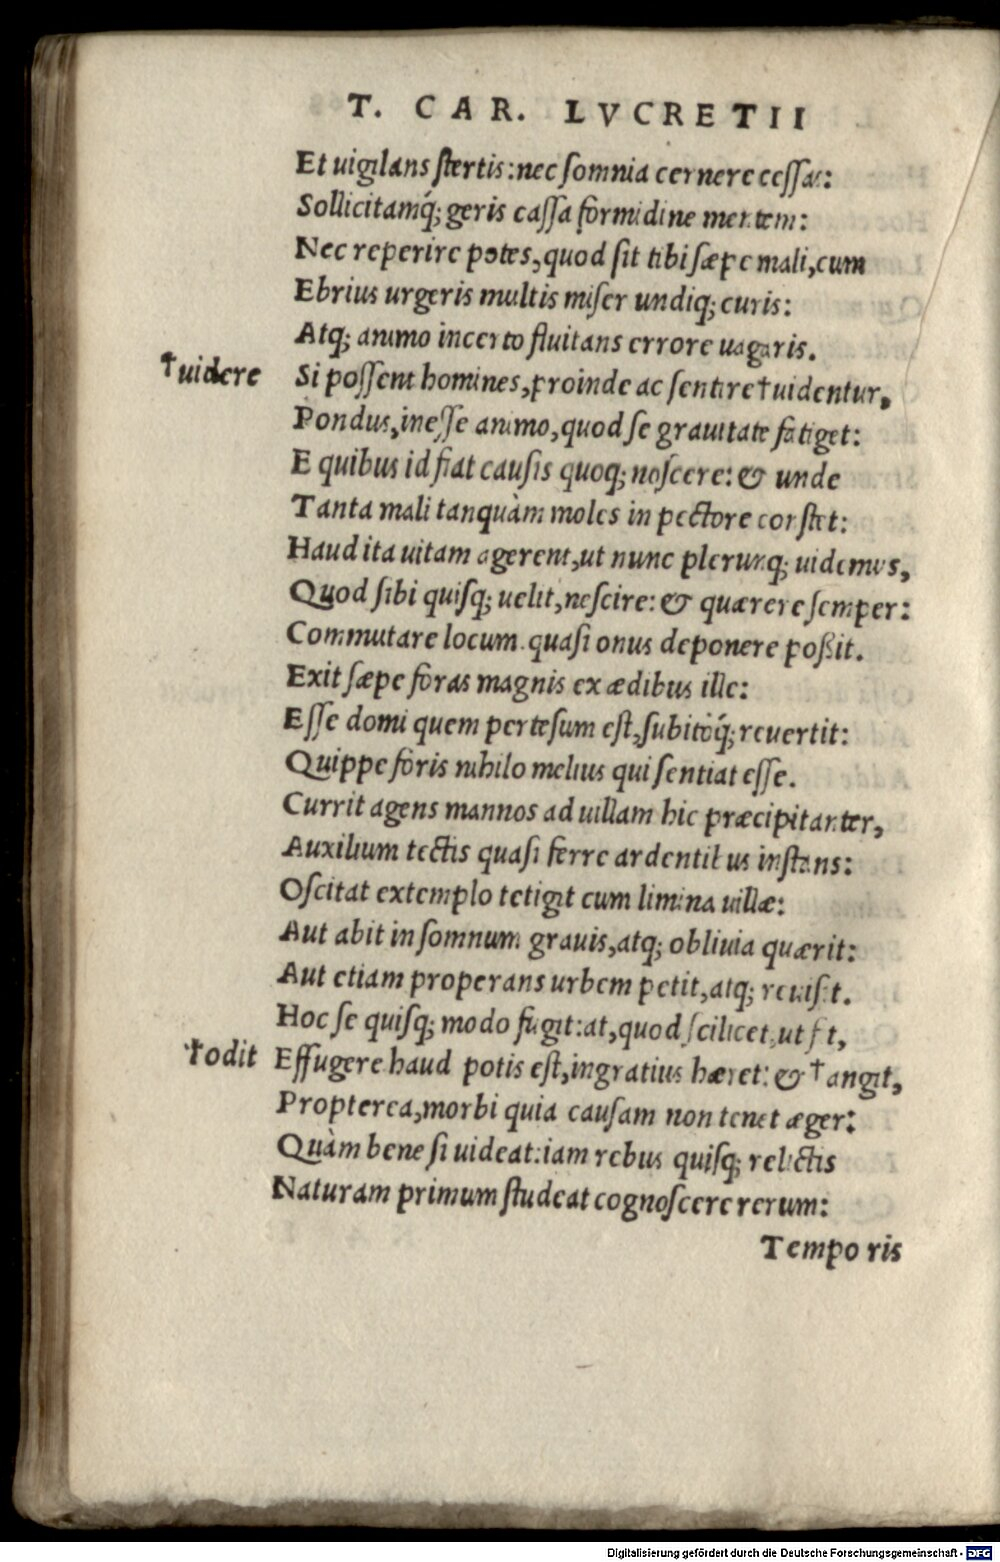 T. CAR. LVCRETII
Et uigilans ſtertis: nec ſomnia cernere ceſſas:
Sollicitamq́; geris caſſa formidine mentem:
Nec reperire potes, quod ſit tibi ſæpe mali, cum
Ebrius urgeris multis miſer undiq; curis:
Atq; animo incerto fluitans errore uagaris.
†uidere Si poſſent homines, proinde ac ſentire †uidentur,
Pondus, ineſſe animo, quod ſe grauitate fatiget:
E quibus id fiat cauſis quoq; noſcere: & unde
Tanta mali tanquàm moles in pectore conſtet:
Haud ita uitam agerent, ut nunc plerunq; uidemus,
Quod ſibi quiſq; uelit, neſcire: & quærere ſemper:
Commutare locum. quaſi onus deponere poßit.
Exit ſæpe foras magnis ex ædibus ille:
Eſſe domi quem perteſum eſt, ſubitoq́; reuertit:
Quippe foris nihilo melius qui ſentiat eſſe.
Currit agens mannos ad uillam hic præcipitanter,
Auxilium tectis quaſi ferre ardentibus inſtans:
Oſcitat extemplo tetigit cum limina uillæ:
Aut abit in ſomnum grauis, atq; obliuia quærit:
Aut etiam properans urbem petit, atq; reuiſit.
Hoc ſe quiſq; modo fugit: at, quod ſcilicet, ut fit,
†odit Effugere haud potis eſt, ingratius hæret: & †angit,
Propterea, morbi quia cauſam non tenet æger:
Quàm bene ſi uideat: iam rebus quiſq; relictis
Naturam primum ſtudeat cognoſcere rerum:
Temporis
Digitalisierung gefördert durch die Deutsche Forschungsgemeinschaft - DFG